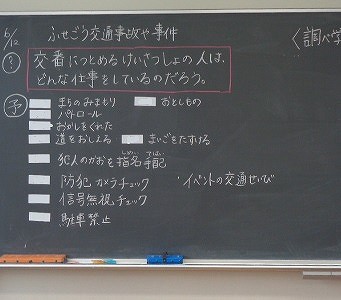 6/12
ふせごう交通事故や事件
〈調べ学
?
交番につとめるけいさつしょの人は、
どんな仕事をしているのだろう。
予
まちのみまもり おとしもの
パトロール
おかしをくれた
道をおしえる まいごをたすける
犯人のかおを指名手配
しめい てはい
防犯カメラチェック ・イベントの交通せいび
信号無視チェック
駐車禁止